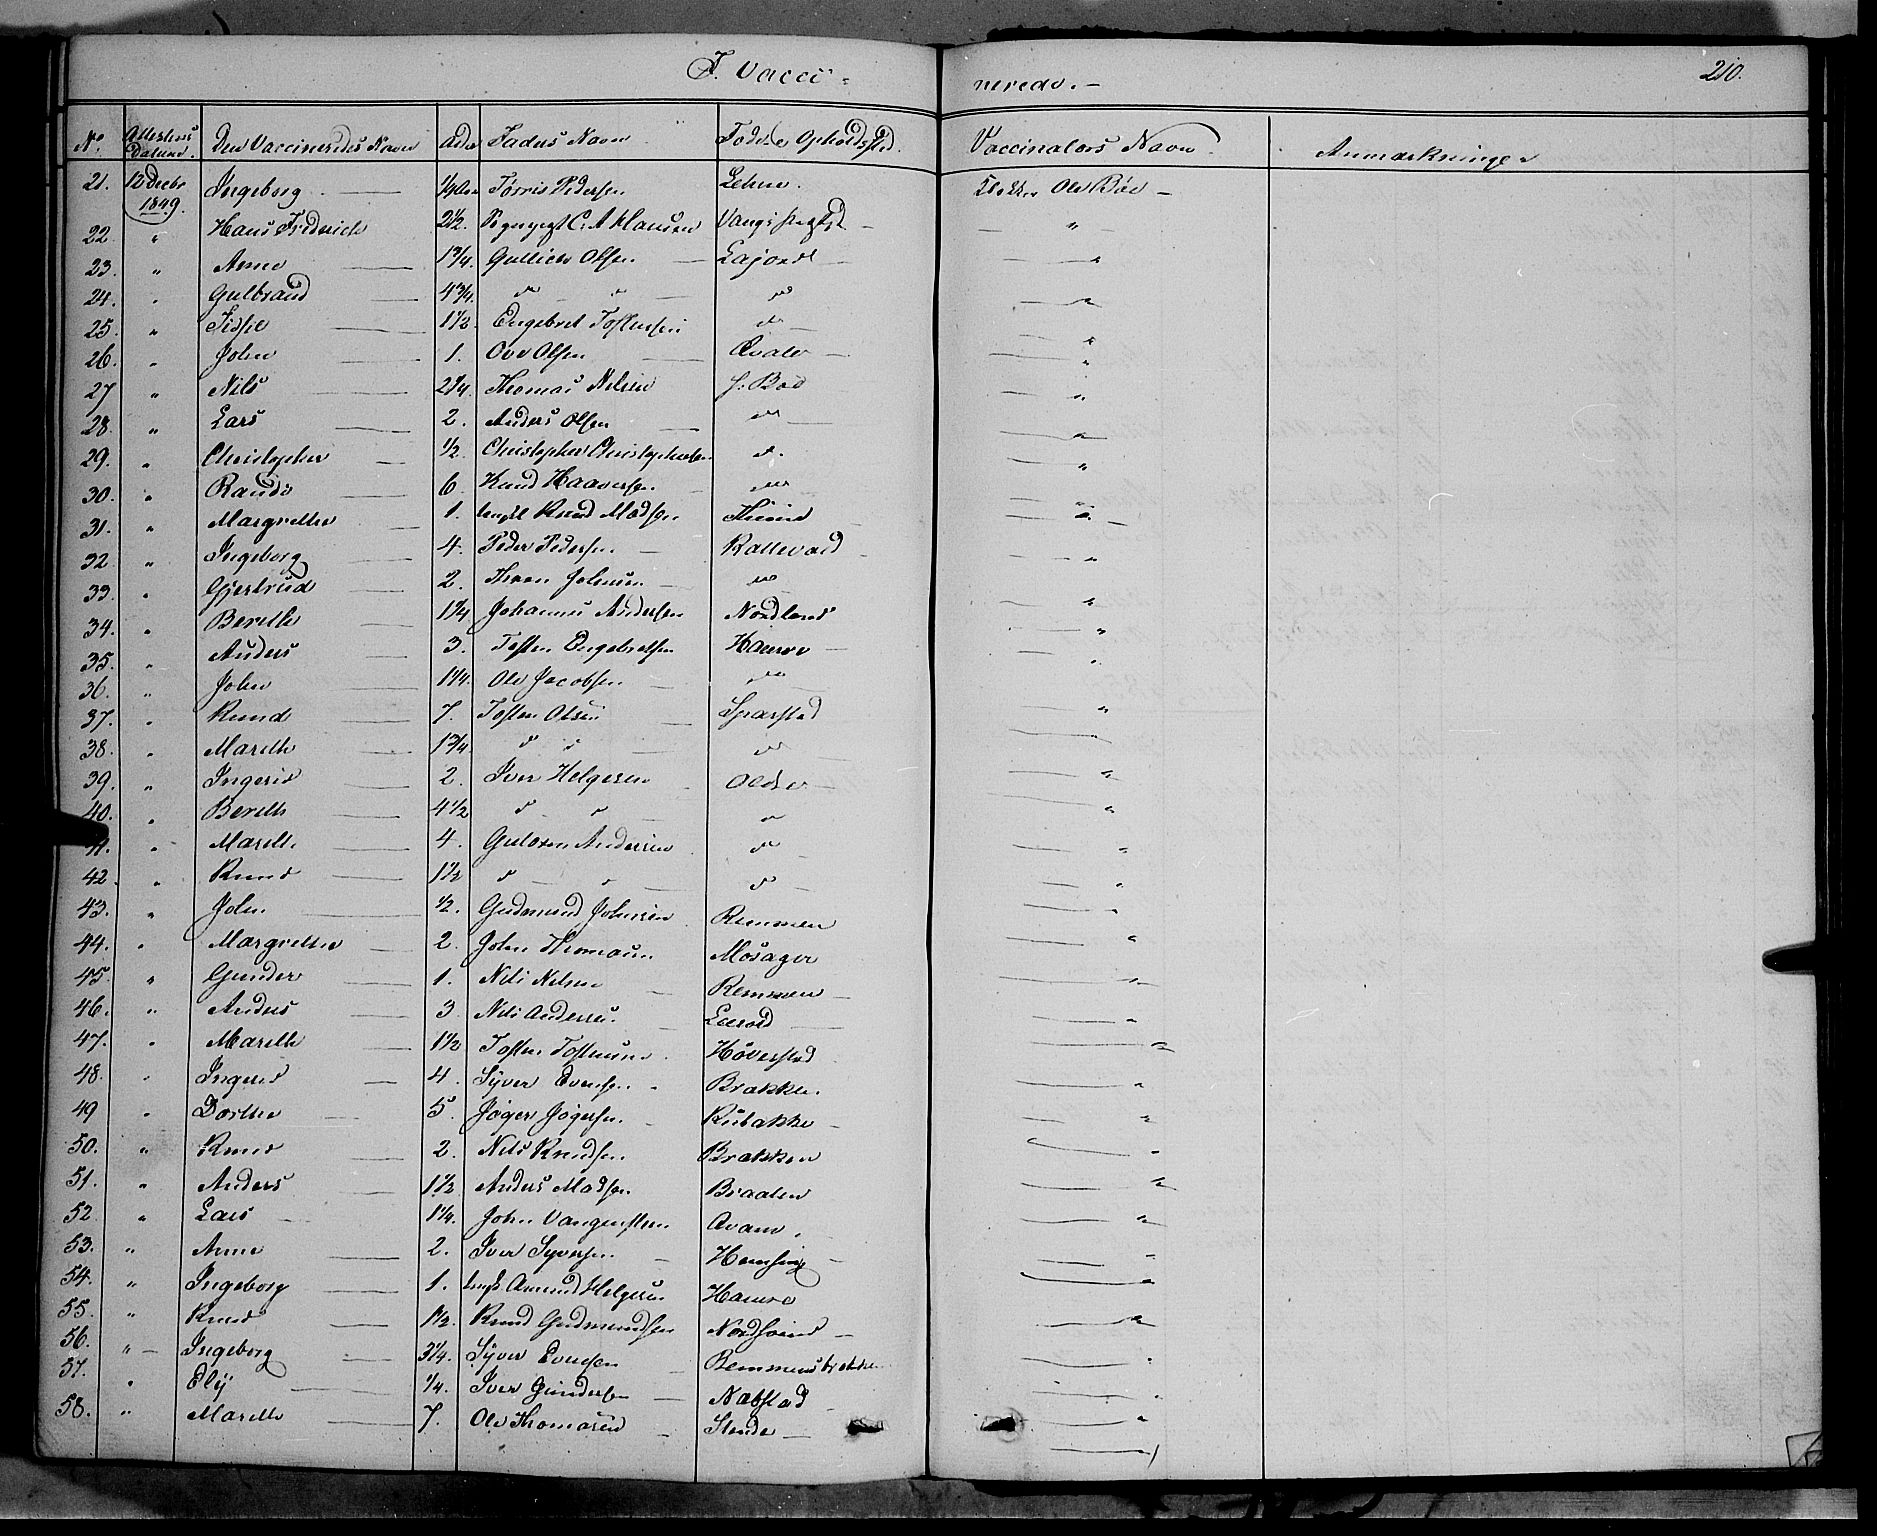 F. Vacci=
nerede. —
210.
No. Attestens Datum. Den Vaccineredes Navn Alder Faders Navn Fødested Opholdssted. Vaccinateurs Navn. Anmærkninger
21. 12 Decbr 1849. Ingeborg — Tørris Pedersen Lehne. Klokker Ole Bøe —
22. " Hans Fredrich 2 1/2. C. A. Klausen Vangs — " —
23. " Anne — 1 3/4. Gullick Olsen — — "
24. " Gulbrand — 4 3/4. " " — " — "
25. " Sidsel — 1 1/2. Engebret Tostensen " — — "
26. " John — 1. Ove Olsen — Qvale — — "
27 " Nils — 2 1/4. Thomas Nilsen s. Bøe "
28. " Lars — 2. Anders Olsen — " — — "
29. " Christopher — 1/2. Christopher Christophersen " — "
30. " Randi — 6. Knud Haaversen — " — "
31. " Margrethe — 1. Knud Madsen — " —
32. " Ingeborg — 4. Peder Pedersen — Kattevold — — "
33. " Gjertrud — 2. Johnsen — " — "
34. " Berethe — 1 1/4 Johannes Andersen Nordland — "
35. " Anders — 3. Tosten Engebretsen Hamre — — "
36. " John — 1 1/4. Ole Jacobsen — "
37. " Knud — 7. Tosten Olsen — Sparstad — "
38. " Marethe — 1 3/4. " " — " — "
39. " Ingerid — 2. Iver Helgesen — "
40. " Berethe 4 1/2 " " " — "
41. " Marethe — 4. Andersen " — "
42. " Knud — 1 1/2 " — " — " — — "
43. " John — 1/2. Gudmund Johnsen Remmen — "
44. " Margrethe — 2. John Thomasen Mosager — "
45. " Gunder — 1. Nils Nilsen — Remmen — — "
46. " Anders — 3 Nils Andersen. — — — "
47. " Marethe — 1 1/2 Tosten Tostensen Høverstad — "
48. " Ingerid — 4. Syver Evensen Brækken. — "
49 " Dorthe — 5. Jøger Jøgersen. — — "
50. " Knud — 2. Nils Knudsen Brækken — "
51. " Anders — 1 1/2 Anders Madsen Braaten — "
52 " Lars — 1 1/4. John Vangensteen Qvam. — "
53. " Anne — 2. Iver Syversen — Hemsing — — "
54. " Ingeborg — 1. Amund Helgesen Hamre — "
55. " Knud — 1 1/2. Knud Gudmundsen — — "
56. " — Ingeborg — 3 1/4. Syver Evensen Remmensbrækken — "
57. " Eli — 1/4. Iver Gundersen — Næfstad — "
58. " Marethe — 7. Ole Thomasen — Stende — — "